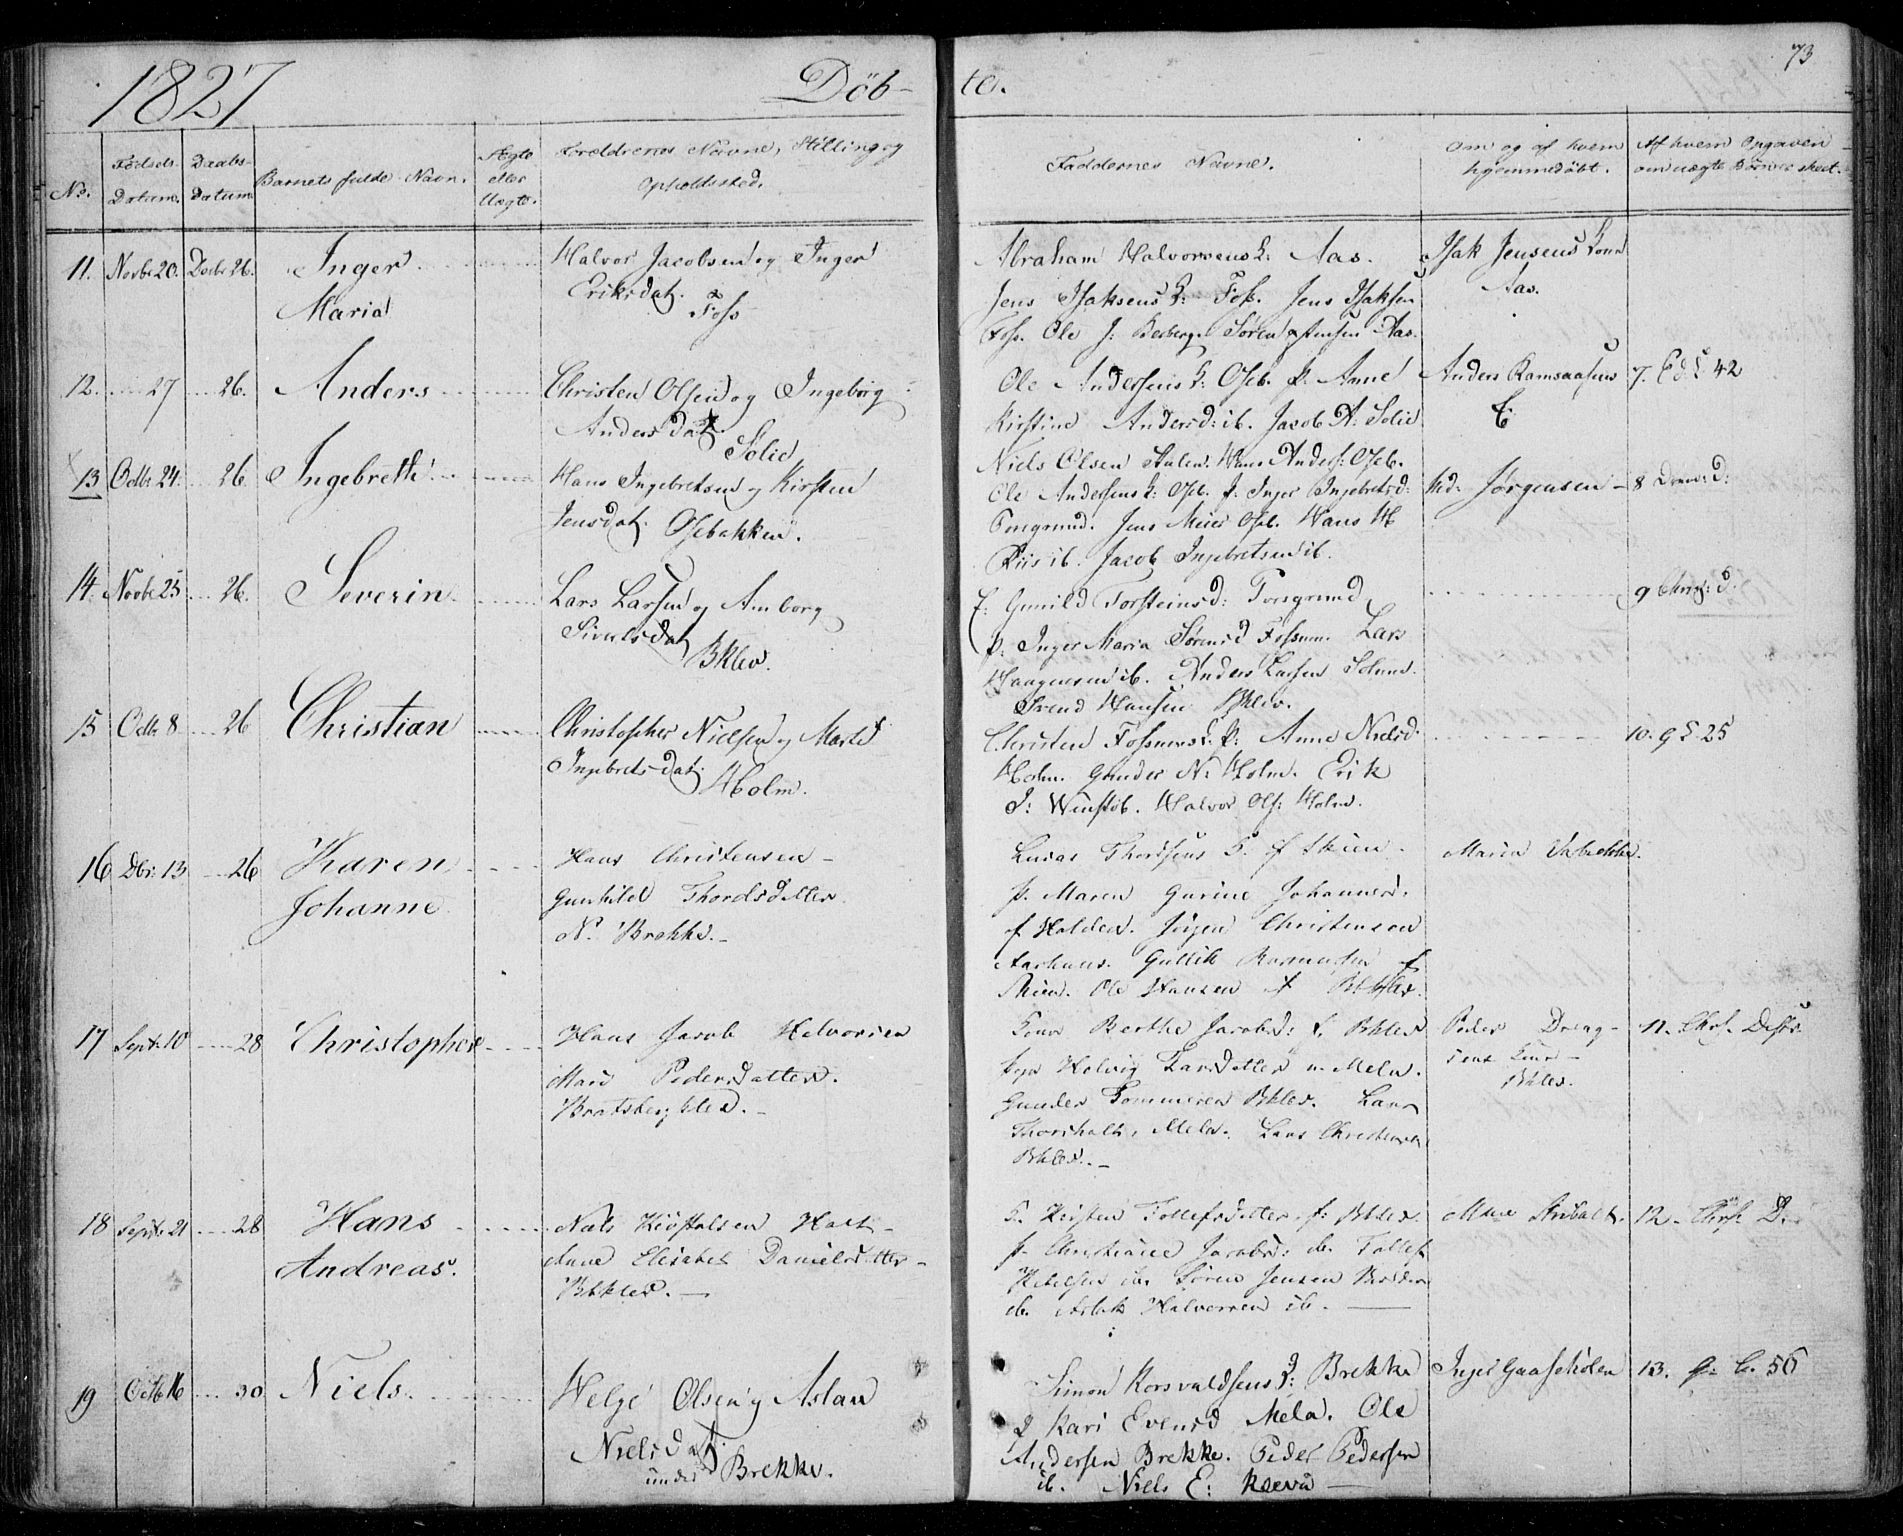 73
1827 Döb- te.
No. Fødsels- Datum. Daabs- Datum. Barnets fulde Navn. Ægte eller Uægte. Forældrenes Navne, Stilling og Opholdssted. Faddernes Navne. Om og af hvem hjemmedøbt. Af hvem Opgaven om uægte Børn er skeet.
11. Novbr 20. Decbr 26. Inger Maria
Halvor Jacobsen og Inger
Eriksdat.
Foss
Abraham Halvorsens K: Aas.
Jens Isaksens K: Foss. Jens Isaksen
Foss. Ole J: Søren Jensen Aas.
Isak Jensens Kone
Aas.
12. 27 26. Anders
Christen Olsen og Ingeborg
Andersdat.
Solid
Ole Andersens K: Oseb. p: Anne
Kirstine Andersd: ib. Jacob A: Solid
Niels Olsen Hans Anders: Oseb.
Anders Ramsaasens
E
7. Ed. S 42
13 Octbr 24. 26. Ingebreth
Hans Ingebretsen og Kirsten
Jensdat. Osebakken.
Ole Andersens K: Oseb. p: Inger Ingebretsd:
Porsgrund. Jens Meier Oseb. Hans H
Riis ib. Jacob Ingebretsen ib.
Md: Jørgensen
8 D:
14. Novbr 25 26. Severin
Lars Larsen og Amborg
Sivulsdat
Bklev.
F: Gunild Torsteinsd: Porsgrund
p: Inger Maria Sørensd Fossum. Lars
Haagensen ib. Anders Larsen Solum.
Svend Hansen Bklev.
9 Chris: d.
15 Octbr 8 26 Christian
Christopher Nielsen og Marte
Ingebretsdat.
Holm.
Christen Fossums K. p: Anne Nielsd.
Holm. Gunder N. Holm. Erik
J: Winstib. Halvor Ols: Holm.
10. 9 S. 25
16 Dbr: 13 26 Karen
Johanne
Hans Christensen
Gunhild Thordsdatter
N. Brekke.
Lucas Thordsens K. f Skien.
p. Maren Gurine Johannesd.
f Halden. Jørgen Christensen
Aarhuus. Gullik Rasmusen f
Skien. Ole Hansen f Bklev.
Maria
17 Septr 10 28 Christopher
Hans Jacob Halvorsen
Mari Pedersdatter.
Bratsbergklev.
Kone Berthe Jacobsd: f. Bklev
Helvig Larsdatter n. Melu.
Gunder Tommesen Bklev. Lars
Thorsholt, Melu. Lars Christensen
Bklev.
Peder Dreng-
sens Kone
Bklev.
11. Chrs. Desbr.
18 Septr 21 28 Hans
Andreas.
Nils Holt
Anne Elisabet Danielsdatter
Bklev.
K. Kirsten Tollefsdatter f: Bklev.
p. Christiane Jacobsd: do. Tollef
Søren Jensen
do. Aslak Halvorsen ib.
12. Chrs. D.
19 Octbr 16 30 Niels
Helge Olsen og Aslau
Nielsdat.
under Brekke.
Simon Korsvaldsens K: Brekke
Kari Evensd Mela. Ole
Andersen Brekke. Peder Pedersen
ib. Niels E: Kleeva
Inger Gaaseholen
13. 56